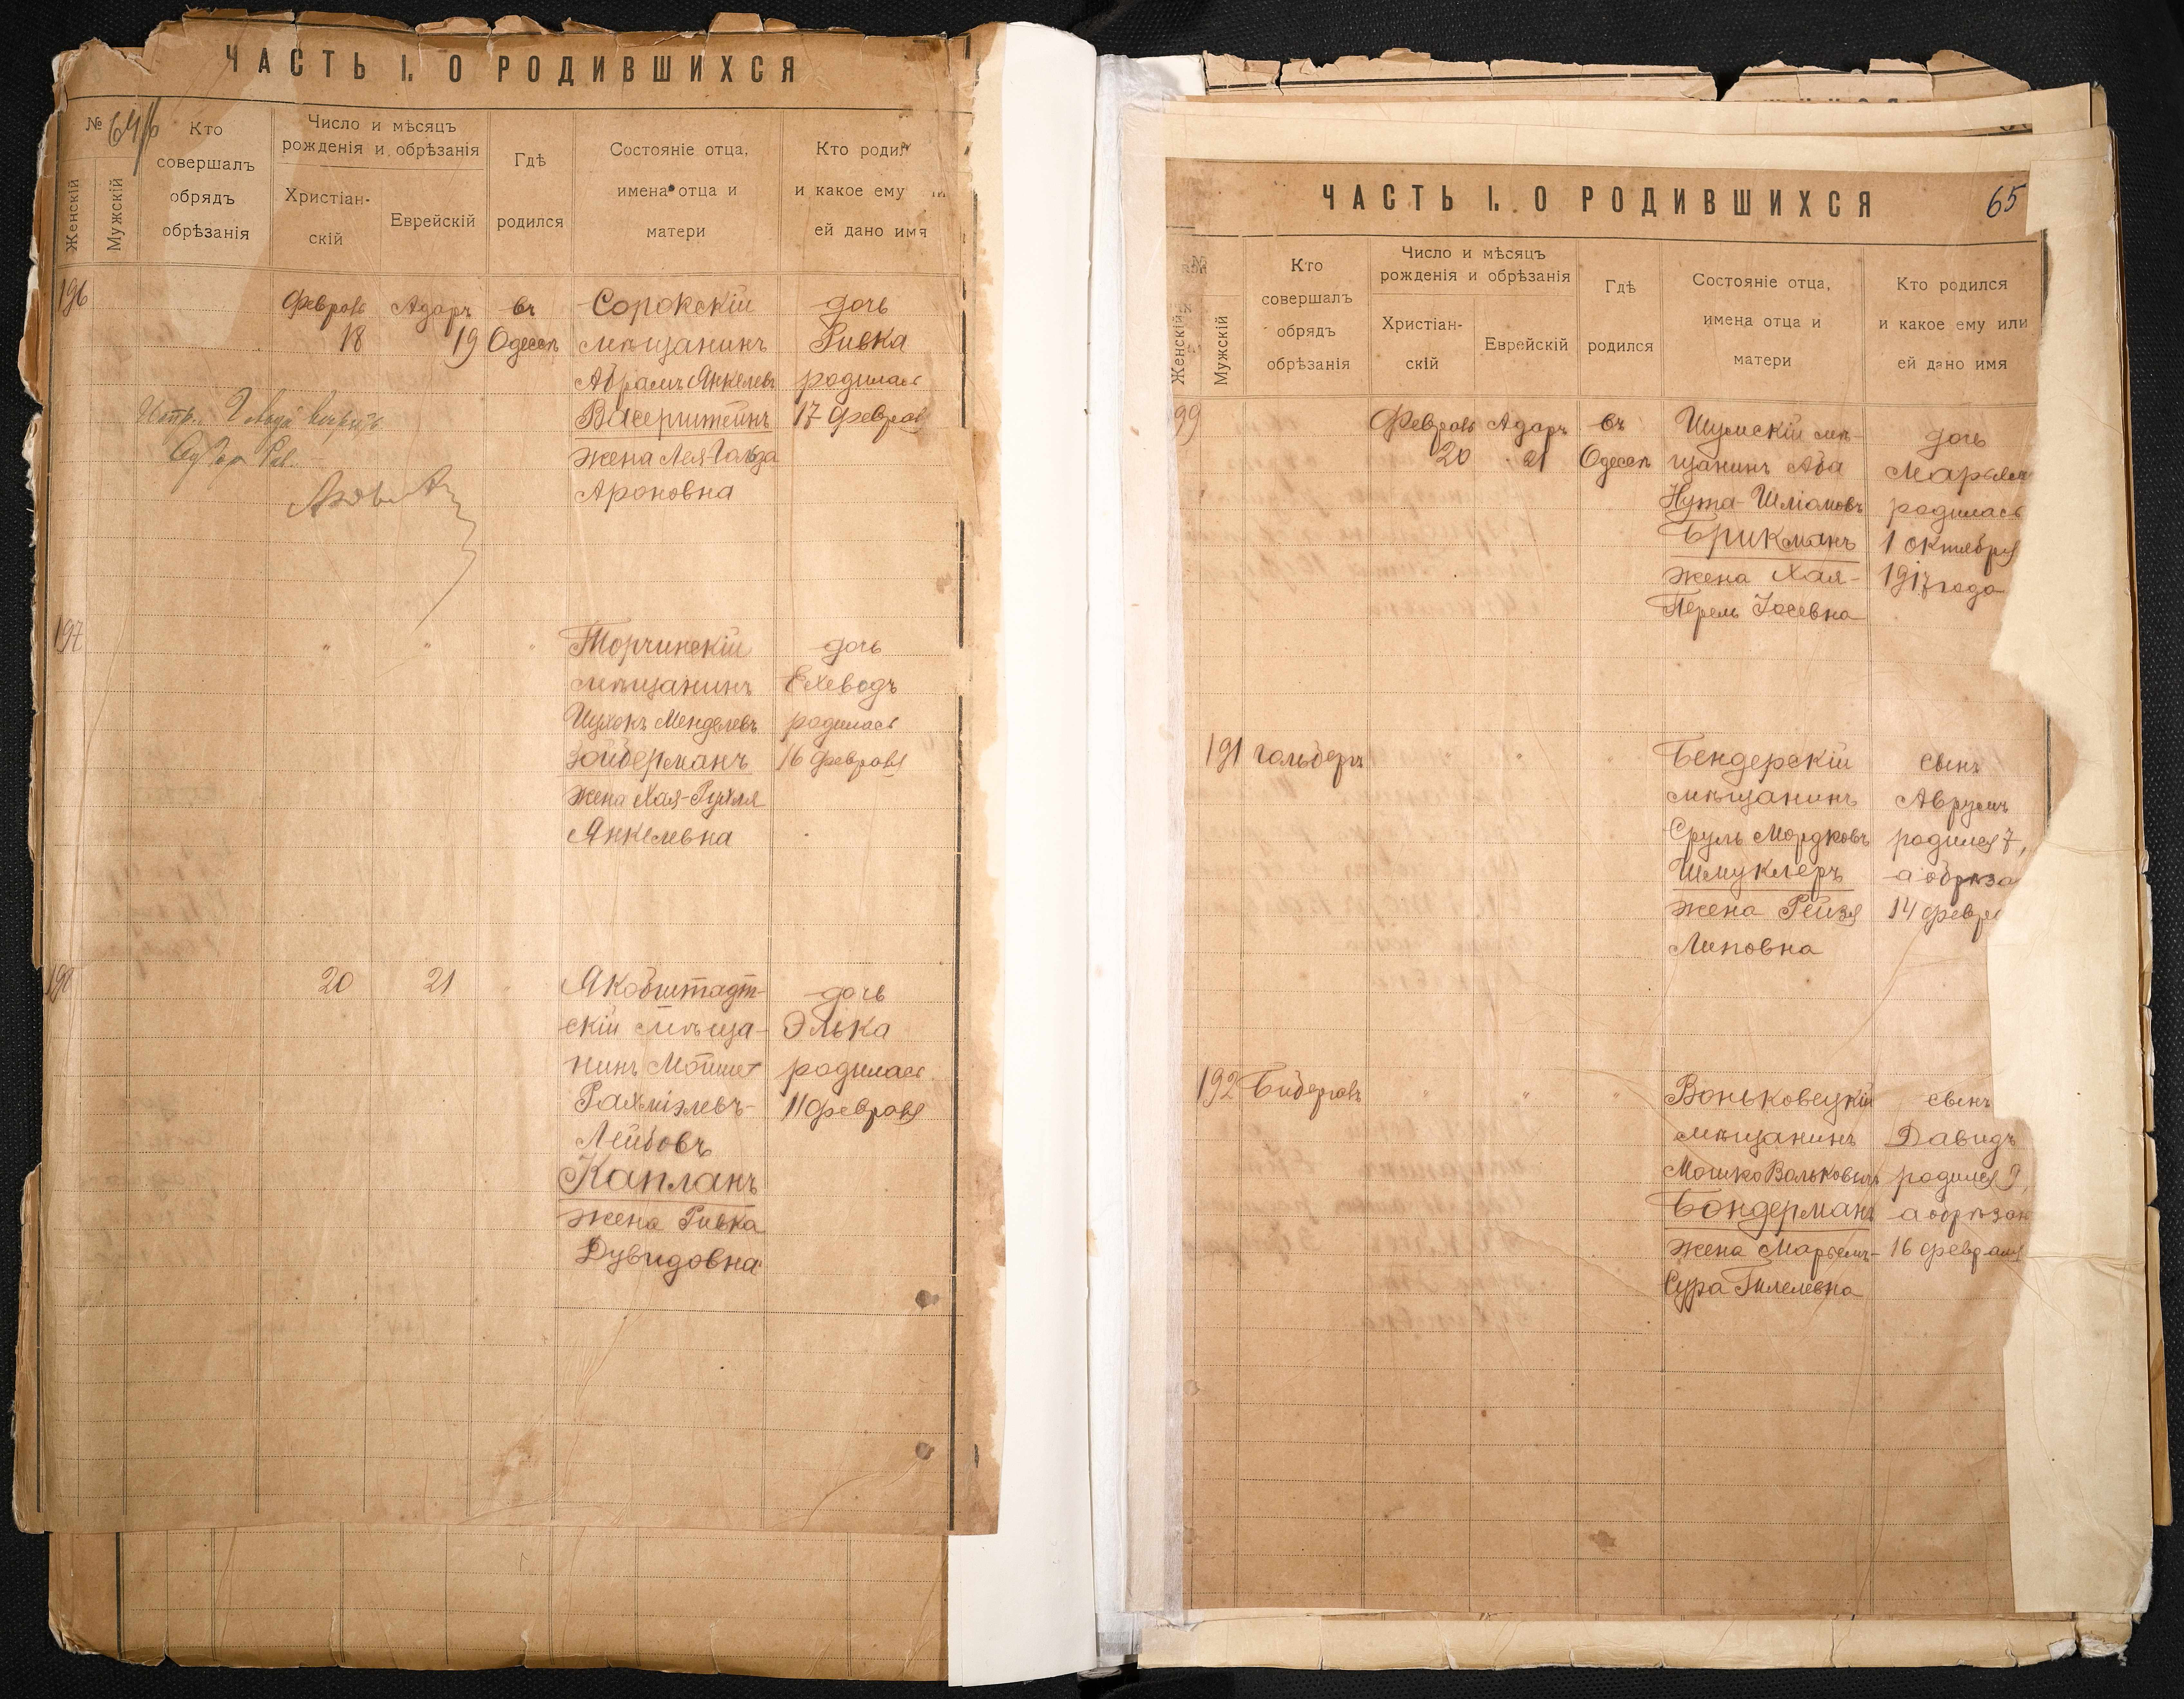 ЧАСТЬ I. О РОДИВШИХСЯ
№
64
Женскій
Мужскій
Кто
совершалъ
обрядъ
обрѣзанія
Число и мѣсяцъ
рожденія и обрѣзанія
Христіан-
скій
Еврейскій
Гдѣ
родился
Состояніе отца,
имена отца и
матери
Кто родил
и какое ему
ей дано имя
196
Февраль
18
Адаръ
19
въ
Одессѣ
Сорокскій
мѣщанинъ
Абрамъ Янкелевъ
Васерштейнъ
жена Лея-Гольда
Ароновна
дочь
Ривка
родилась
17 февраля
197
" " "
Торчинскій
мѣщанинъ
Ицхокъ Менделевъ
Зойберманъ
жена Хая-Рухля
Янкелевна
дочь
Ехеводъ
родилась
16 февраля
198
20
21
"
Якобштадт-
скій мѣща-
нинъ Мойше
Рахміэлевъ-
Лейбовъ
Капланъ
жена Ривка
Дувидовна
дочь
Элька
родилась
11 февраля
ЧАСТЬ I. О РОДИВШИХСЯ
65
Женскій
Мужскій
Кто
совершалъ
обрядъ
обрѣзанія
Число и мѣсяцъ
рожденія и обрѣзанія
Христіан-
скій
Еврейскій
Гдѣ
родился
Состояніе отца,
имена отца и
матери
Кто родился
и какое ему или
ей дано имя
99
Февраль
20
Адаръ
21
въ
Одессѣ
Шумскій мѣ-
щанинъ Аба
Нута-Шліомовъ
Брикманъ
жена Хая-
Перель Іосевна
дочь
Марьям
родилась
1 октября
1917 года
191
Гольберъ
" " "
Бендерскій
мѣщанинъ
Сруль Мордковъ
Шмуклеръ
жена Рейзя
Липовна
сынъ
Аврумъ
родился 7,
а обрѣза
14 февра
192
Бидеровъ
" " "
Воньковецкій
мѣщанинъ
Мошко Вольковичъ
Бондерманъ
жена Марьемъ-
Сура Гилелевна
сынъ
Давидъ
родился 9,
а обрѣзан
16 февраля